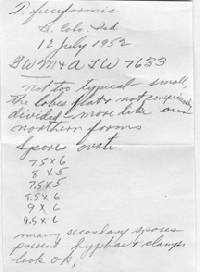 T. fuciformis
B. Colo. Isl.
12 July 1952
GWM & A L W 7633
not too typical small,
the lobes flat & not conspicuously
divided more like our
northern forms
Spore ovate
7.5 x 6
8 x 5
7.5 x 5
8.5 x 6
9 x 6
9.5 x 6
many secondary spores
present hyphae & clamps
look O.K.